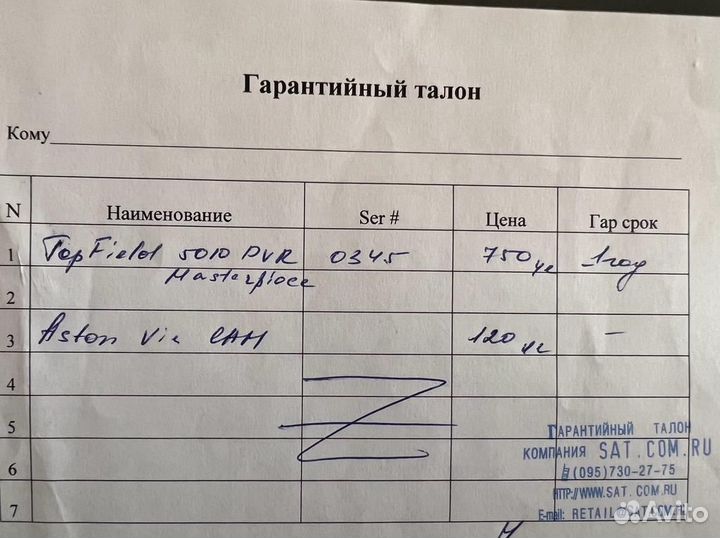 Гарантийный талон
Кому
N Наименование Ser # Цена Гар срок
1 TopField 5010 PVR 0345 750 уе 1 год
Masterpiece
2
3 Aston Via CAM 120 уе —
4
5
6
7
ГАРАНТИЙНЫЙ ТАЛОН
КОМПАНИЯ SAT.COM.RU
(095)730-27-75
HTTP://WWW.SAT.COM.RU
E-mail: RETAIL@SAT.COM.RU
Avito